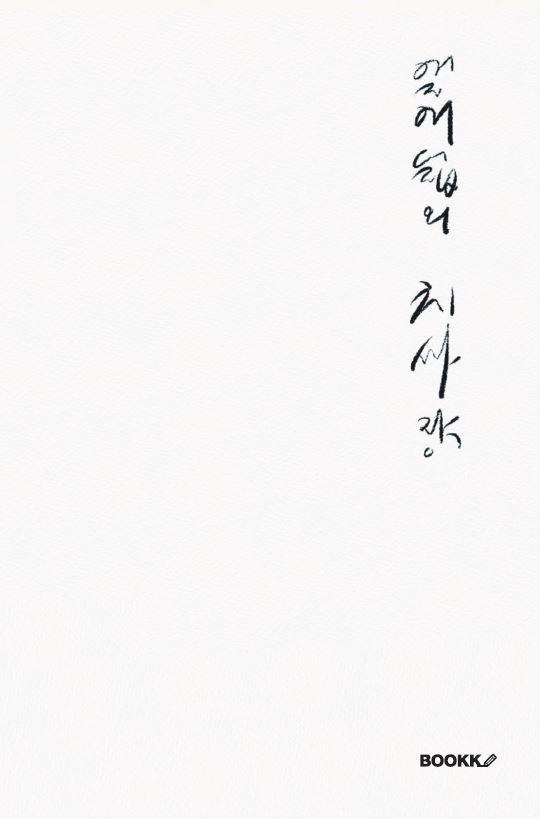 열여덟의 치사량
BOOKK